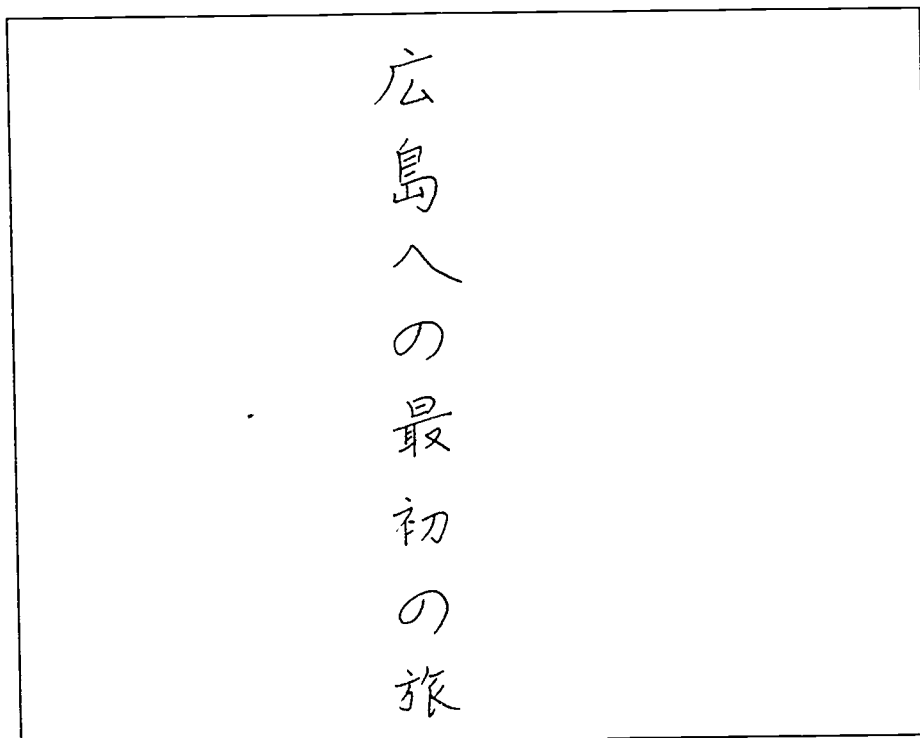 広島への最初の旅